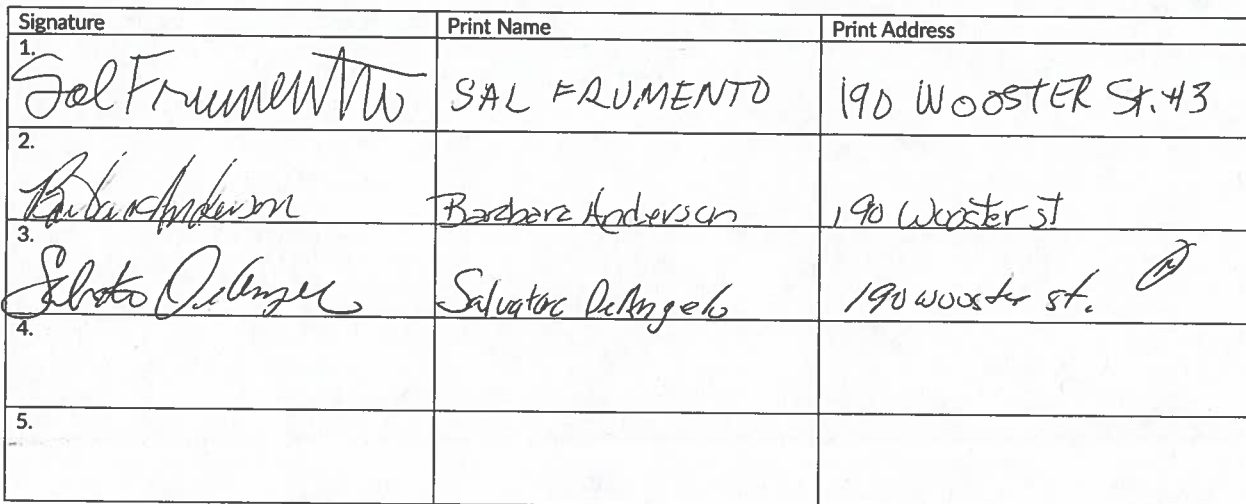 Signature Print Name Print Address
1. Sal Frumento SAL FRUMENTO 190 WOOSTER St. #3
2. Barbara Anderson Barbara Anderson 190 Wooster st
3. Salvatore DeAngelo Salvatore DeAngelo 190 wooster st.
4.
5.